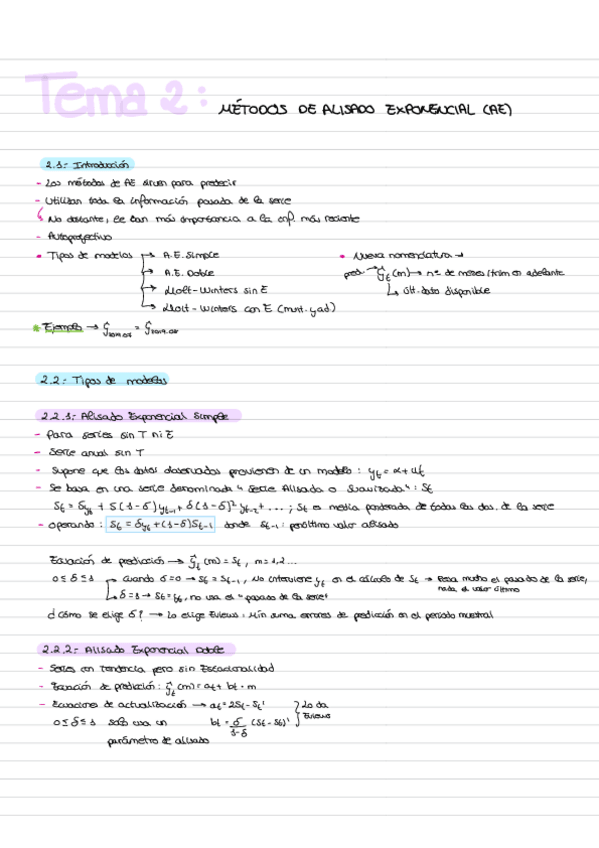 Tema 2: MÉTODOS DE ALISADO EXPONENCIAL (AE)
2.1: Introducción
- Los métodos de AE sirven para predecir
- Utilizan toda la información pasada de la serie
No obstante, le dan más importancia a la inf. más reciente
- Autoproyectivo
• Tipos de modelos → A.E. Simple
→ A.E. Doble
→ Holt-Winters sin E
→ Holt-Winters con E (mult. y ad)
• Nueva nomenclatura →
pred. → ŷt (m) → nº de meses/trim en adelante
↳ últ. dato disponible
* Ejemplo →
2.2: Tipos de modelos
2.2.1: Alisado Exponencial Simple
- Para series sin T ni E
- Serie anual sin T
- Supone que los datos observados provienen de un modelo: yt = α + ut
- Se basa en una serie denominada "Serie Alisada o Suavizada": St
St = δyt + δ(1-δ)yt-1 + δ(1-δ)² yt-2 + ... ; St es media ponderada de todas las obs. de la serie
- Operando: St = δyt + (1-δ)St-1 donde St-1: penúltimo valor alisado
Ecuación de predicción → ŷt (m) = St, m = 1,2...
0 ≤ δ ≤ 1 → cuando δ=0 → St = St-1, No interviene yt en el cálculo de St → Pesa mucho el pasado de la serie,
nada el valor último
↳ δ=1 → St = yt, no usa el "pasado de la serie"
¿Cómo se elige δ? → Lo elige Eviews: Mín suma errores de predicción en el período muestral
2.2.2: Alisado Exponencial Doble
- Series con tendencia pero sin Estacionalidad
- Ecuación de predicción: ŷt (m) = at + bt · m
- Ecuaciones de actualización → at = 2St - St'
0 ≤ δ ≤ 1 solo usa un bt = δ/1-δ (St - St)'
parámetro de alisado
Lo da
Eviews